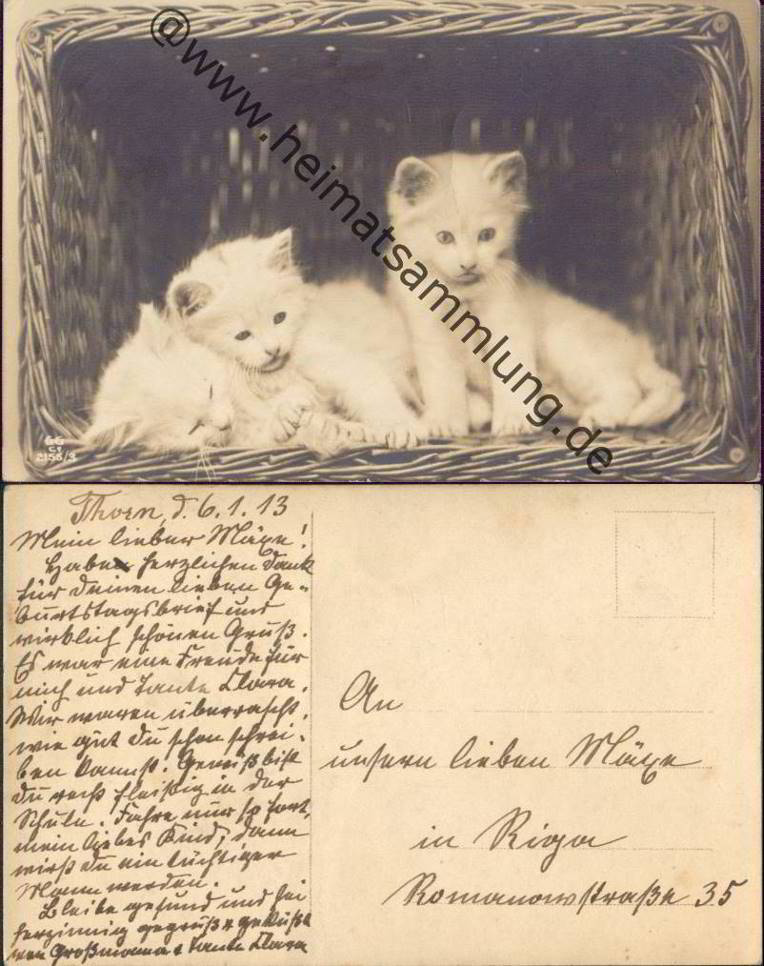 @www.heimatsammlung.de
GG
C1
2156/3
Thorn, d. 6.1.13
Mein lieber Mäxe!
Habe herzlichen Dank
für Deinen lieben Ge-
burtstagsbrief und
wirklich schönen Gruß.
Es war eine Freude für
mich und Tante Klara.
Wir waren überrascht,
wie gut Du schon schrei-
ben kannst. Gewiß bist
Du recht fleißig in der
Schule. Fahre nur so fort,
mein liebes Kind, dann
wirst Du ein tüchtiger
Mann werden.
Bleibe gesund und sei
herzinnig gegrüßt u geküßt
von Großmama u Tante Klara
An
unsern lieben Mäxe
in Riga
Romanowstraße 35